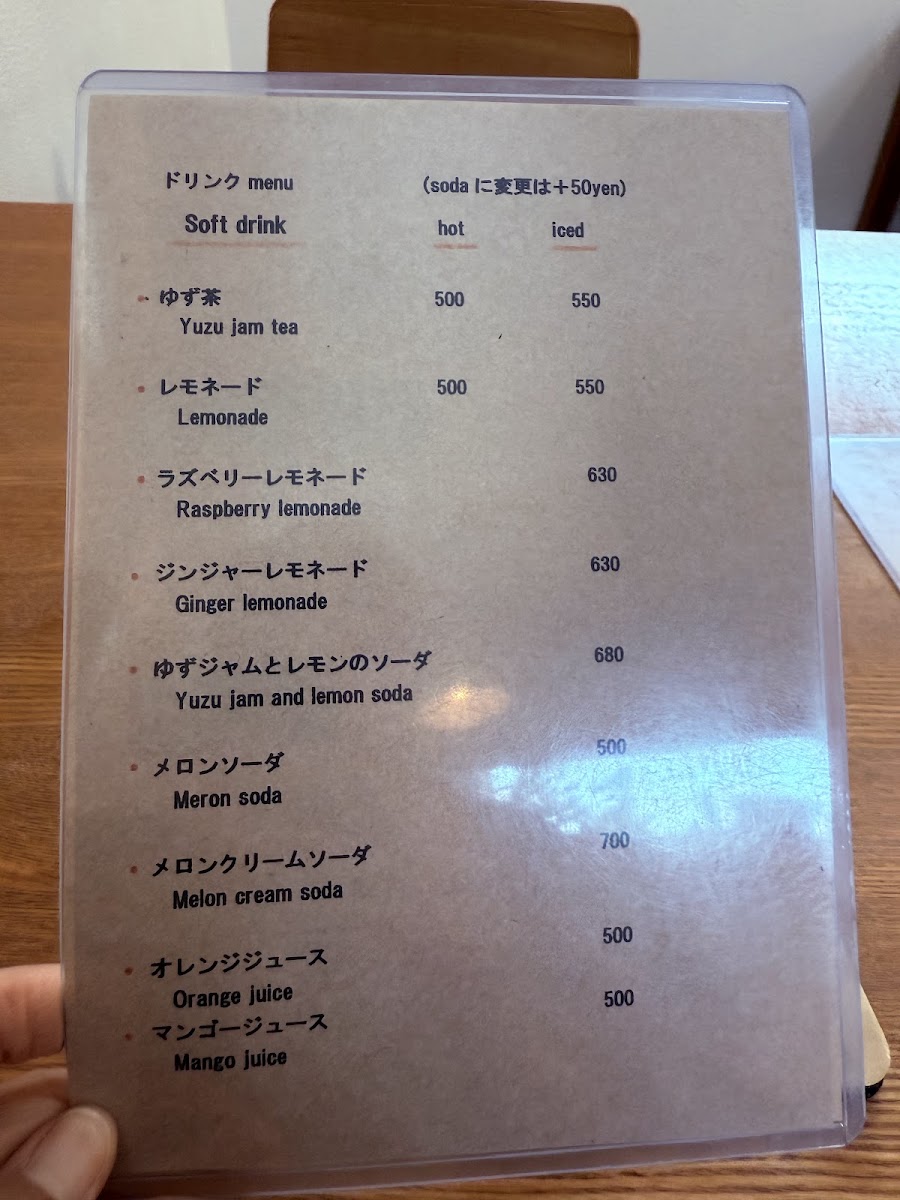 ドリンク menu (soda に変更は＋50yen)
Soft drink hot iced
ゆず茶 500 550
Yuzu jam tea
レモネード 500 550
Lemonade
ラズベリーレモネード 630
Raspberry lemonade
ジンジャーレモネード 630
Ginger lemonade
ゆずジャムとレモンのソーダ 680
Yuzu jam and lemon soda
メロンソーダ 500
Meron soda
メロンクリームソーダ 700
Melon cream soda
オレンジジュース 500
Orange juice
マンゴージュース 500
Mango juice